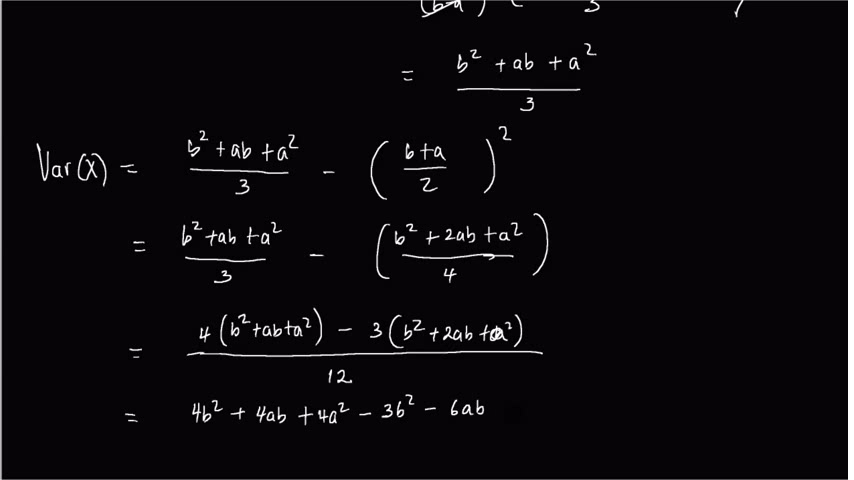 (b-a) ( 3 )
= (b² + ab + a²) / 3
Var(X) = (b² + ab + a²) / 3 - ((b+a) / 2)²
= (b² + ab + a²) / 3 - ((b² + 2ab + a²) / 4)
= (4(b² + ab + a²) - 3(b² + 2ab + a²)) / 12
= 4b² + 4ab + 4a² - 3b² - 6ab